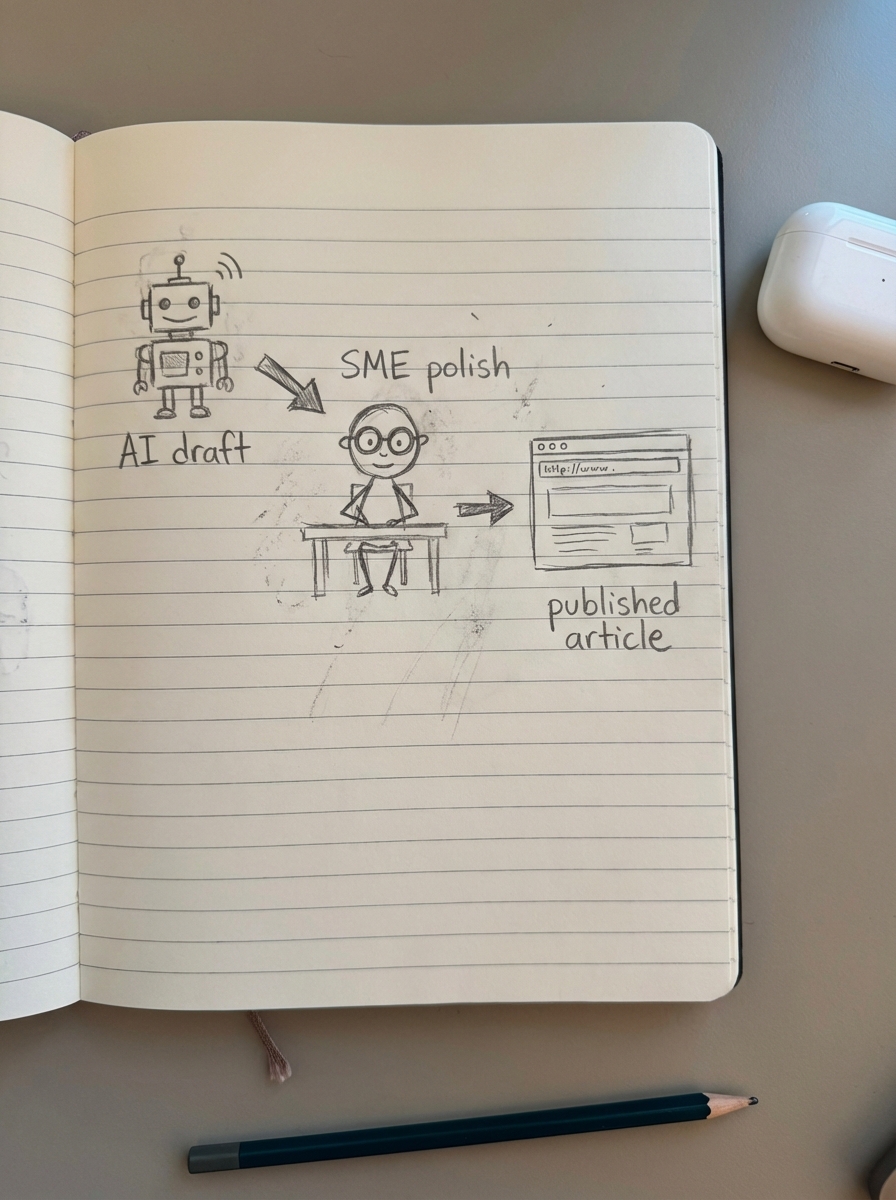 AI draft
SME polish
http://www.
published
article